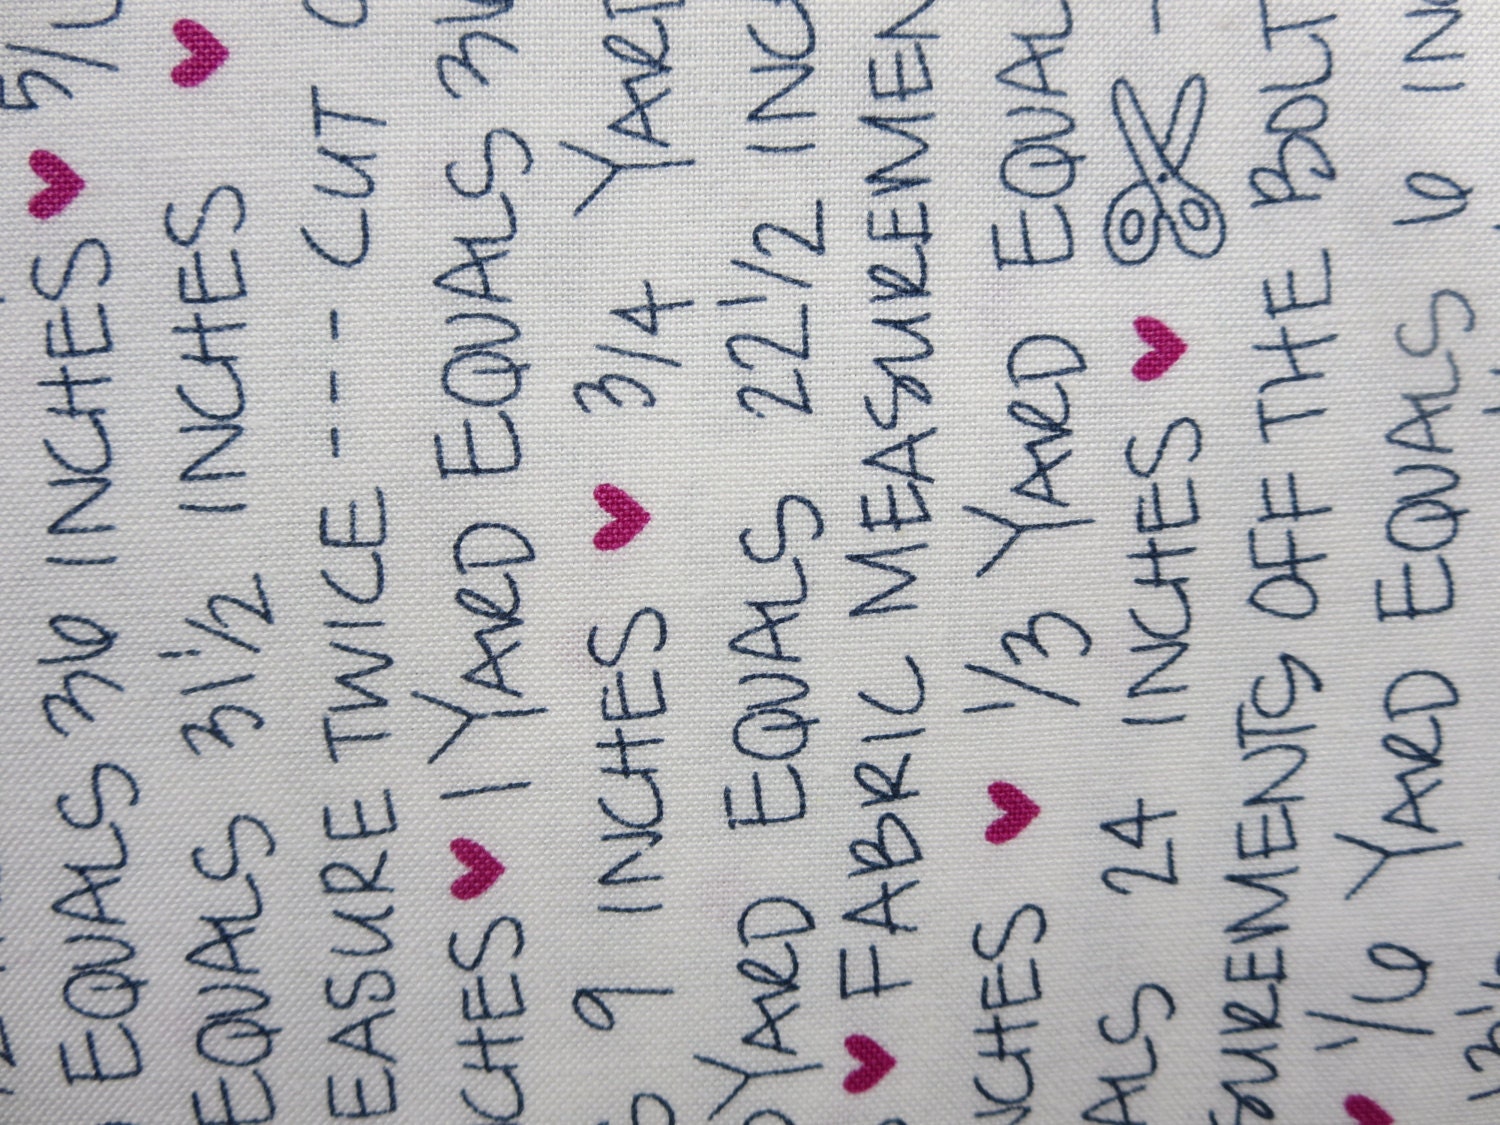 EQUALS 36 INCHES ♥ 5/
EQUALS 31 1/2 INCHES ♥
EASURE TWICE ---- CUT
CHES ♥ 1 YARD EQUALS 36
9 INCHES ♥ 3/4 YARD
YARD EQUALS 22 1/2 INC
♥ FABRIC MEASUREMEN
NCHES ♥ 1/3 YARD EQUAL
ALS 24 INCHES ♥
SUREMENTS OFF THE BOLT
♥ 1/6 YARD EQUALS 6 IN